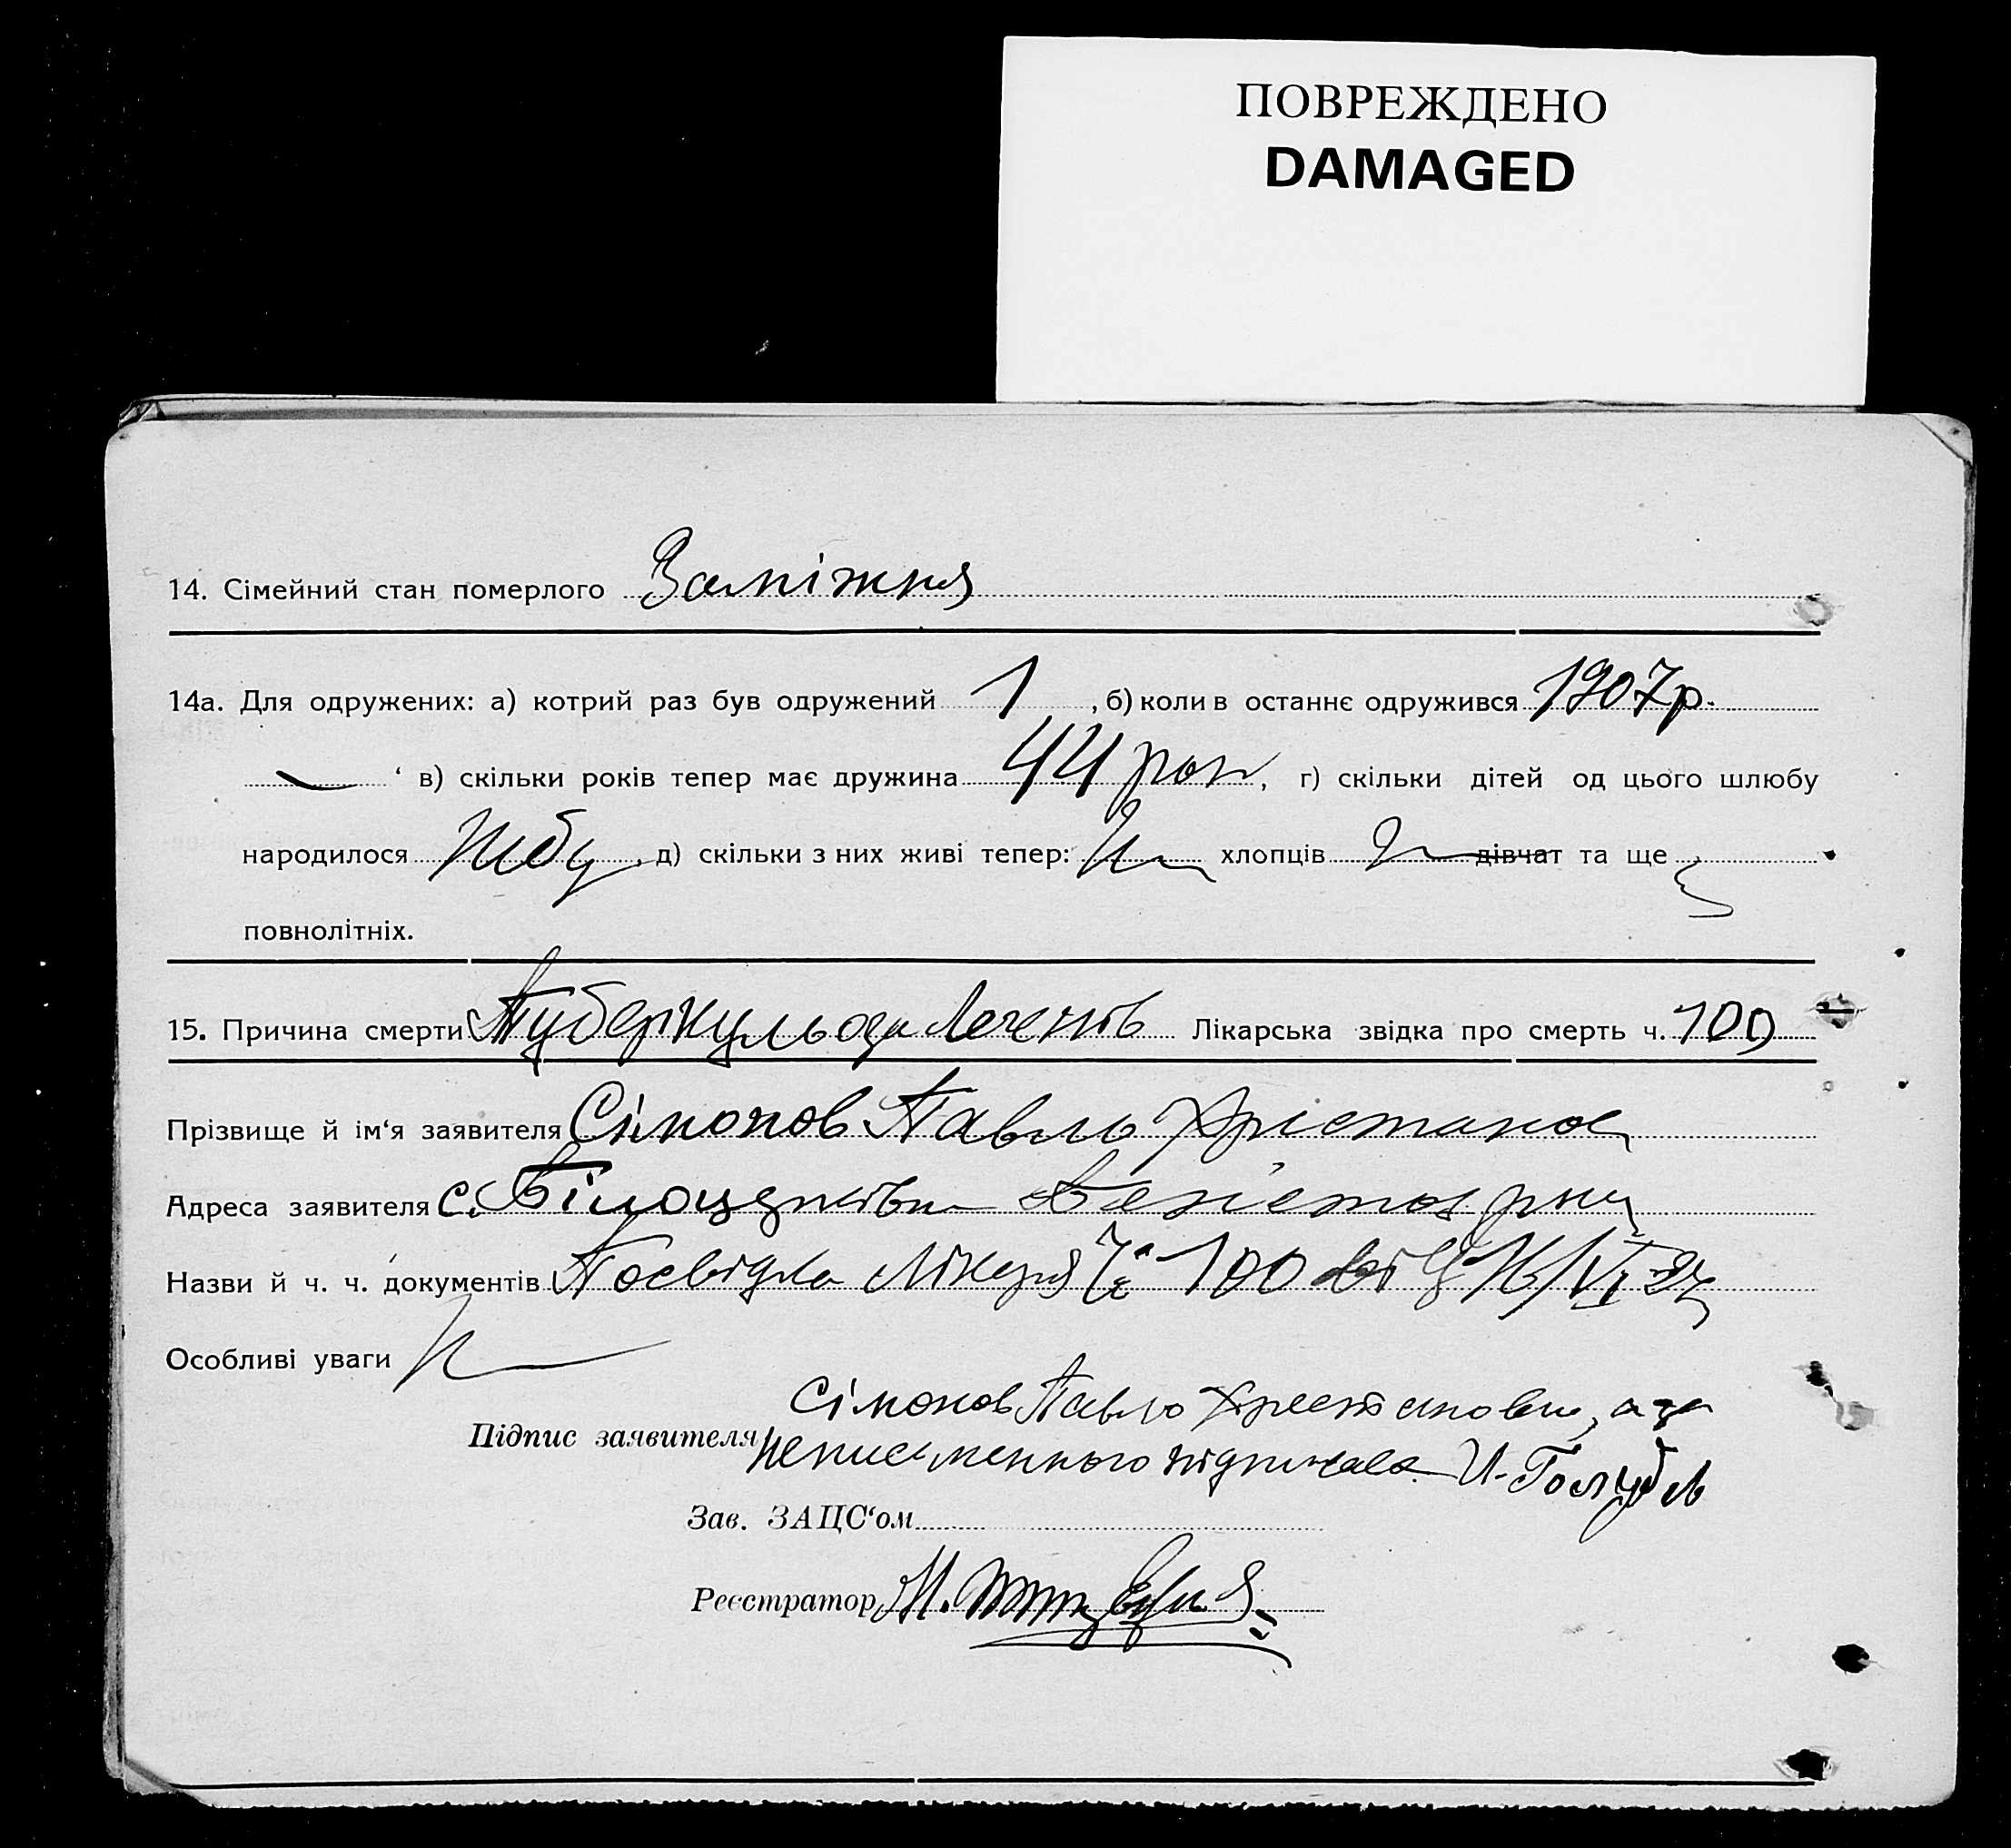 ПОВРЕЖДЕНО
DAMAGED
14. Сімейний стан померлого Заміжня
14а. Для одружених: а) котрий раз був одружений 1 , б) коли в останнє одружився 1907 р.
‘ в) скільки років тепер має дружина 44 рок , г) скільки дітей од цього шлюбу
народилося , д) скільки з них живі тепер: хлопців дівчат та ще
повнолітніх.
15. Причина смерти Туберкульоза Легенів Лікарська звідка про смерть ч. 100
Прізвище й ім‘я заявителя Сімонов Павло
Адреса заявителя с.
Назви й ч. ч. документів Посвідка Лікаря 100 16/VI
Особливі уваги
Сімонов Павло а за
Підпис заявителя неписьменного підписався И. Голуб
Зав. ЗАЦС‘ом
Реєстратор М.